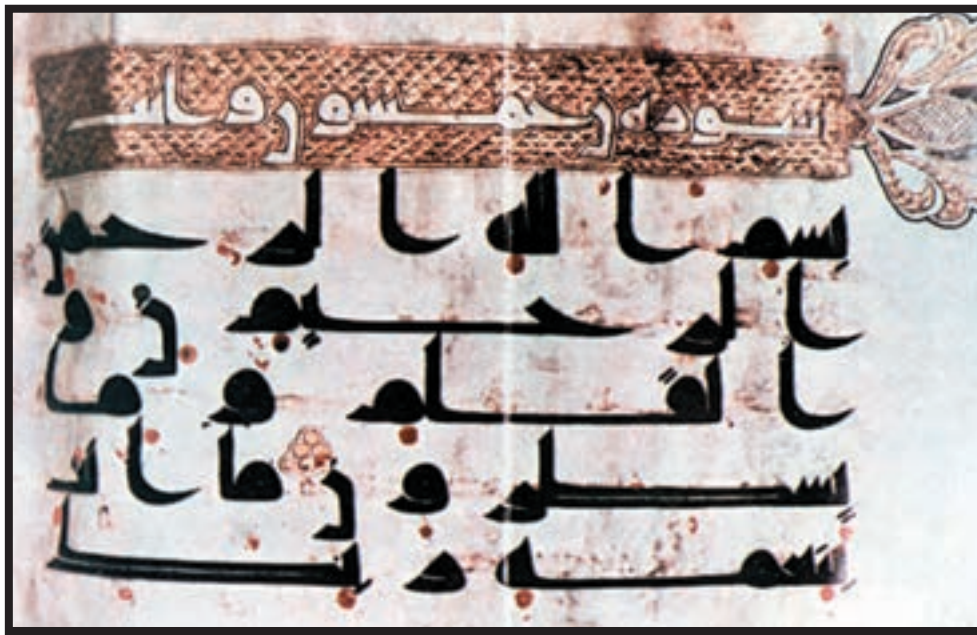 سورة ن خمسون
بسم الله الرحمن
الرحيم ن و
القلم و ما
يسطرون ما انت
بنعمه ربك